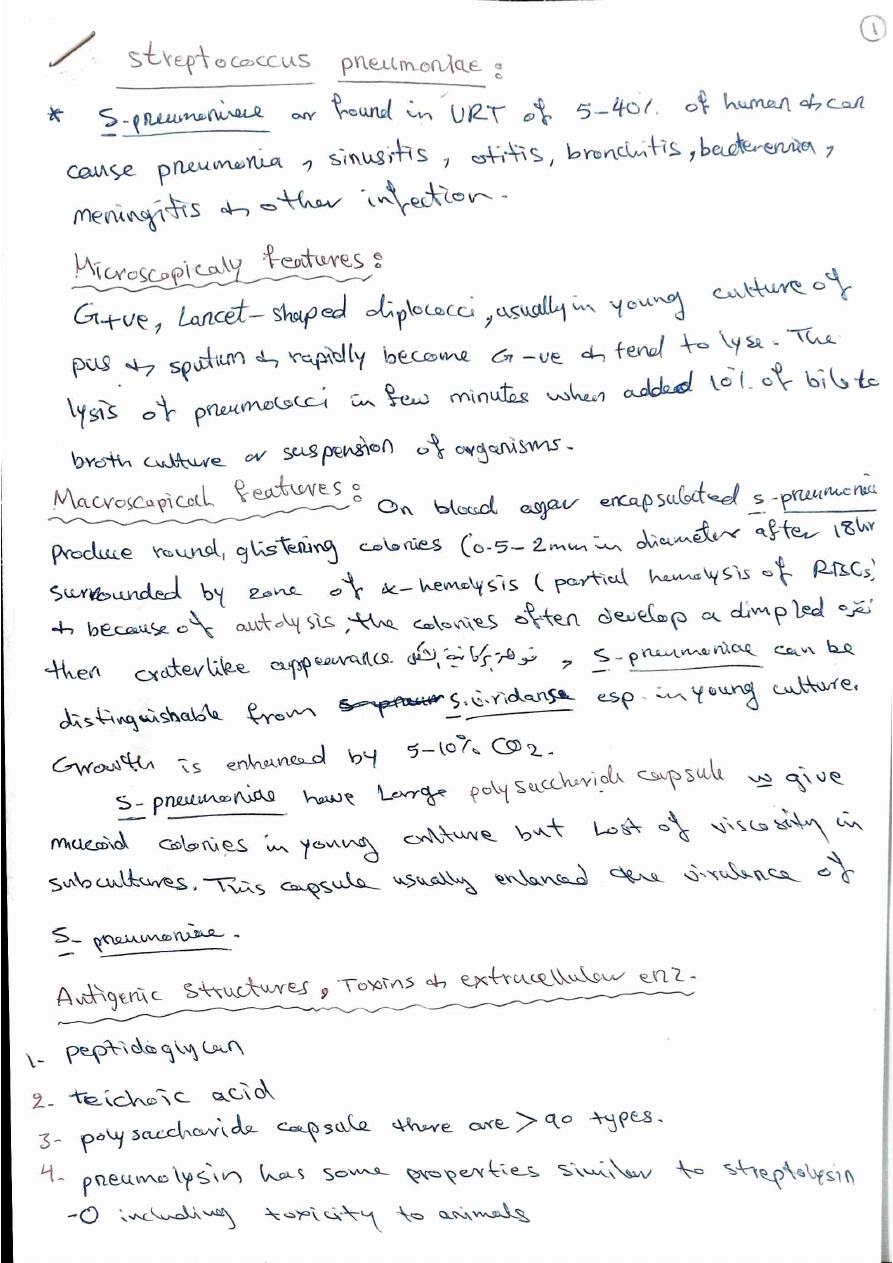 1
streptococcus pneumoniae :
* S-pneumoniae are found in URT of 5-40% of human & can
cause pneumonia, sinusitis, otitis, bronchitis, bacteremia,
meningitis & other infection.
Microscopicaly features :
G+ve, Lancet-shaped diplococci, usually in young culture of
pus & sputum & rapidly become G-ve & tend to lyse. The
lysis of pneumococci in few minutes when added 10% of bile to
broth culture or suspension of organisms.
Macroscopicall features : On blood agar encapsulated s-pneumoniae
produce round, glistening colonies (0.5-2mm in diameter after 18hr
surrounded by zone of α-hemolysis (partial hemolysis of RBCs)
& because of autolysis, the colonies often develop a dimpled
then craterlike appearance, S-pneumoniae can be
distinguishable from S.viridanse esp. in young culture.
Growth is enhanced by 5-10% CO2.
S-pneumoniae have Large polysaccharide capsule w give
mucoid colonies in young culture but Lost of viscosity in
subcultures. This capsule usually enhanced the virulence of
S-pneumoniae.
Antigenic Structures, Toxins & extracellular enz.
1- peptidoglycan
2- teichoic acid
3- polysaccharide capsule there are >90 types.
4- pneumolysin has some properties similar to streptolysin
-O including toxicity to animals